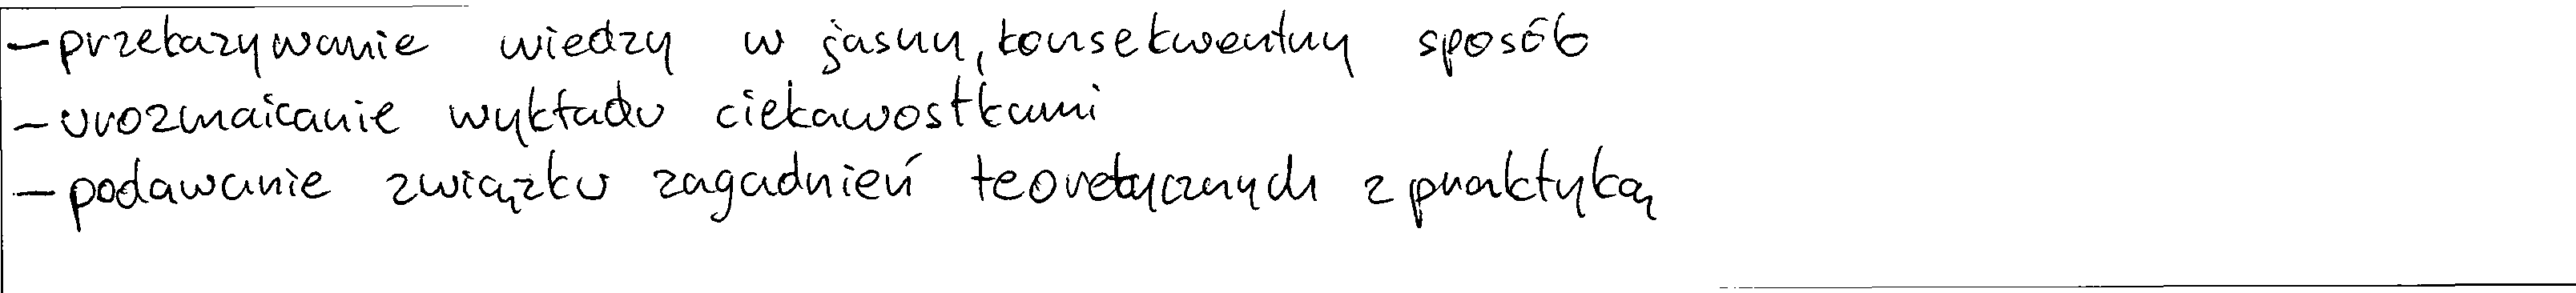 - przekazywanie wiedzy w jasny, konsekwentny sposób
- urozmaicanie wykładu ciekawostkami
- podawanie związku zagadnień teoretycznych z praktyką